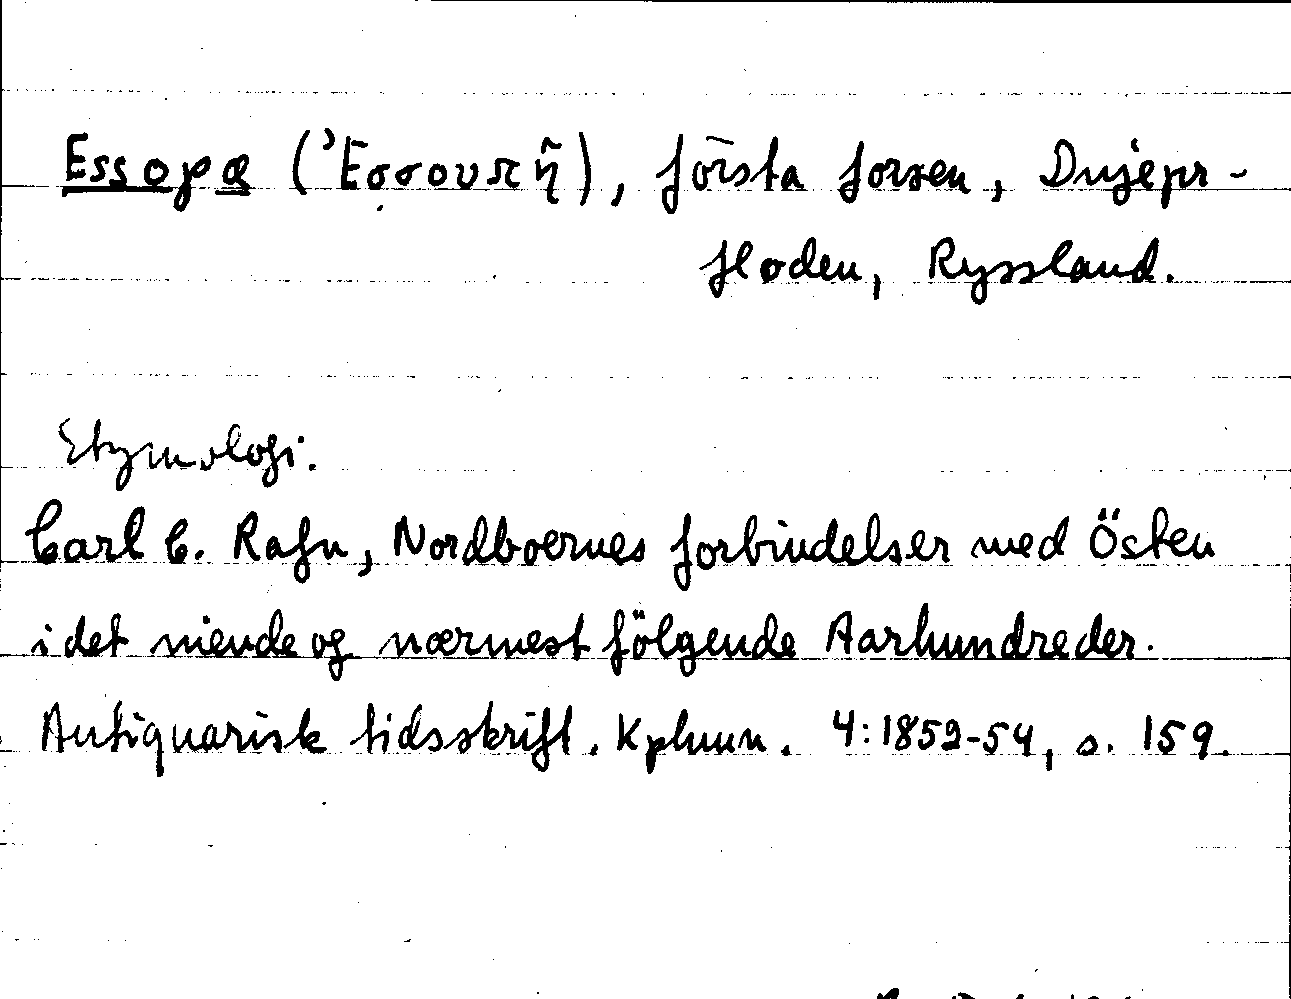 Essopæ (Ἐσσουπῆ), första forsen, Dnjepr-
floden, Ryssland.
Etymologi.
Carl C. Rafn, Nordboernes forbindelser med Östen
i det niende og nærmest fölgende Aarhundreder.
Antiquarisk tidsskrift. Kphmn. 4:1852-54, s. 159.